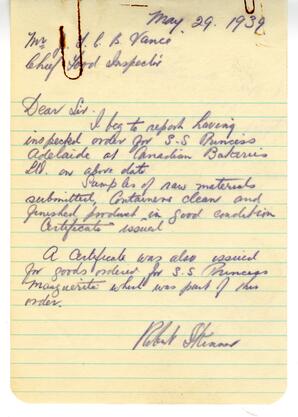 May 29. 1939
Mr J. C B Vance
Chief Food Inspector
Dear Sir.
I beg to report having
inspected order for S.S Princess
Adelaide at Canadian Bakeries
Ltd. on above date
Samples of raw materials
submitted, Containers clean and
finished product in good condition
Certificate issued
A Certificate was also issued
for goods ordered for S.S Princess
Marguerite which was part of this
order.
Robert Skinner